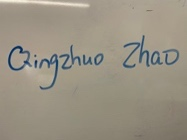 Qingzhuo Zhao